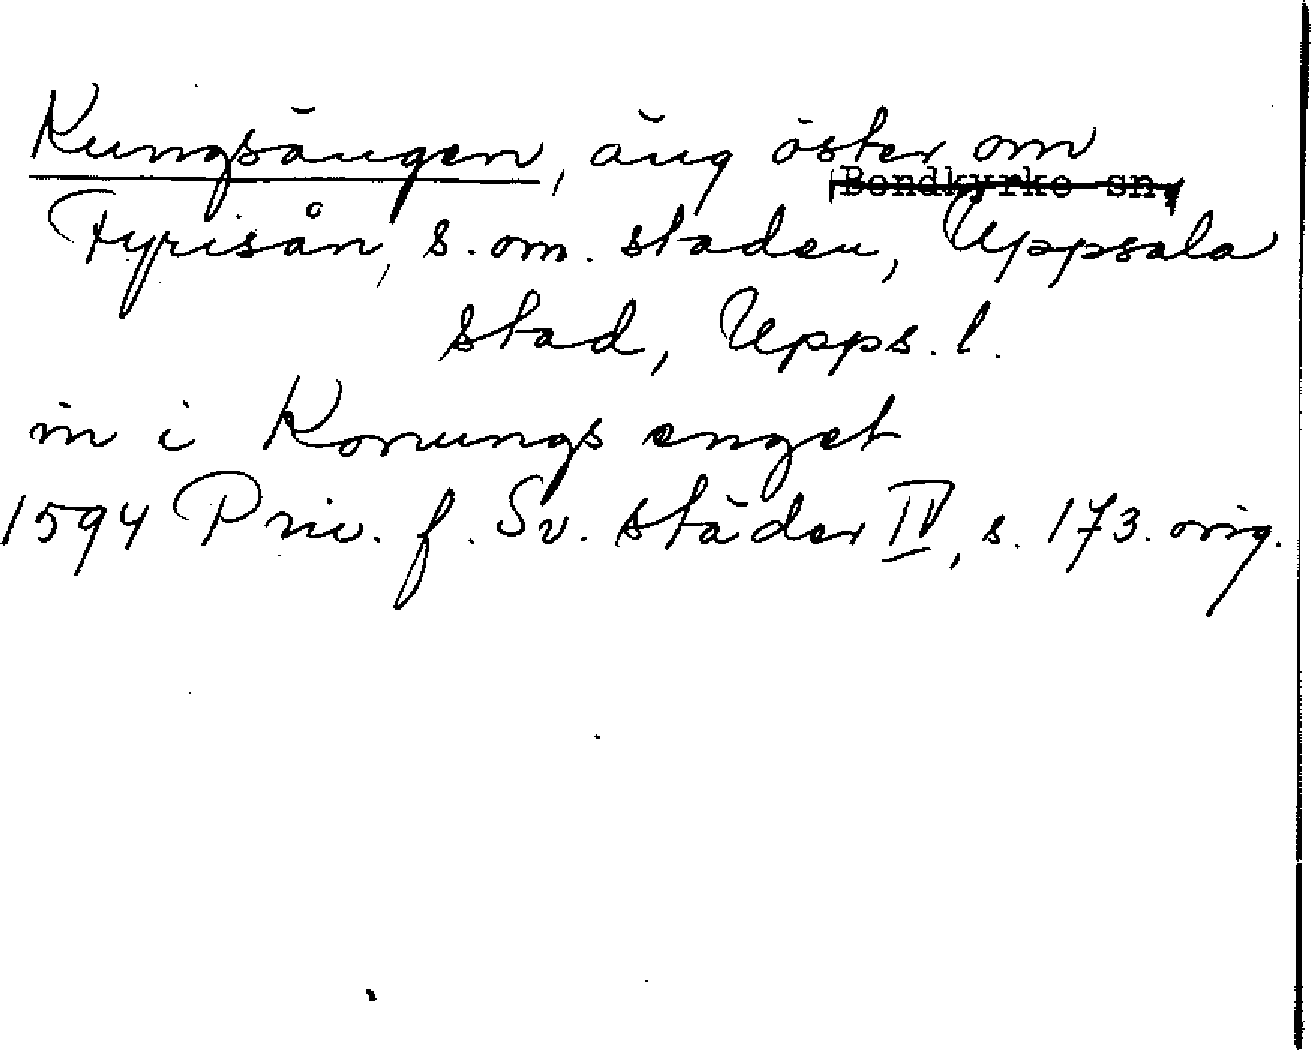 Kungsängen, äng öster om
Bondkyrko sn,
Fyrisån, s. om. staden, Uppsala
stad, Upps. l.
in i Konungs enget
1594 Priv. f. Sv. städer IV, s. 173. orig.